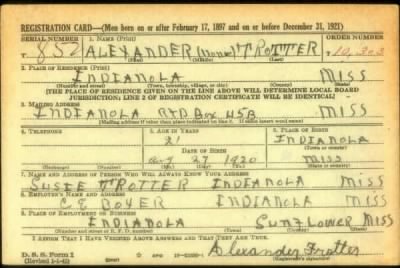 REGISTRATION CARD—(Men born on or after February 17, 1897 and on or before December 31, 1921)
SERIAL NUMBER 1. NAME (Print) ORDER NUMBER
T 852 ALEXANDER (None) TROTTER 10,303
(First) (Middle) (Last)
2. PLACE OF RESIDENCE (Print)
INDIANOLA MISS
(Number and street) (Town, township, village, or city) (County) (State)
[THE PLACE OF RESIDENCE GIVEN ON THE LINE ABOVE WILL DETERMINE LOCAL BOARD
JURISDICTION; LINE 2 OF REGISTRATION CERTIFICATE WILL BE IDENTICAL]
3. MAILING ADDRESS
INDIANOLA RFD BOX 45B MISS
[Mailing address if other than place indicated on line 2. If same insert word same]
4. TELEPHONE 5. AGE IN YEARS 6. PLACE OF BIRTH
21 INDIANOLA
DATE OF BIRTH (Town or county)
Aug 27 1920 MISS
(Exchange) (Number) (Mo.) (Day) (Yr.) (State or country)
7. NAME AND ADDRESS OF PERSON WHO WILL ALWAYS KNOW YOUR ADDRESS
SUSIE TROTTER INDIANOLA MISS
8. EMPLOYER'S NAME AND ADDRESS
C E BOYER INDIANOLA MISS
9. PLACE OF EMPLOYMENT OR BUSINESS
INDIANOLA SUNFLOWER MISS
(Number and street or R. F. D. number) (Town) (County) (State)
I AFFIRM THAT I HAVE VERIFIED ABOVE ANSWERS AND THAT THEY ARE TRUE.
D. S. S. Form 1
(Revised 1-1-42) (over) GPO
Alexander Trotter
(Registrant's signature)